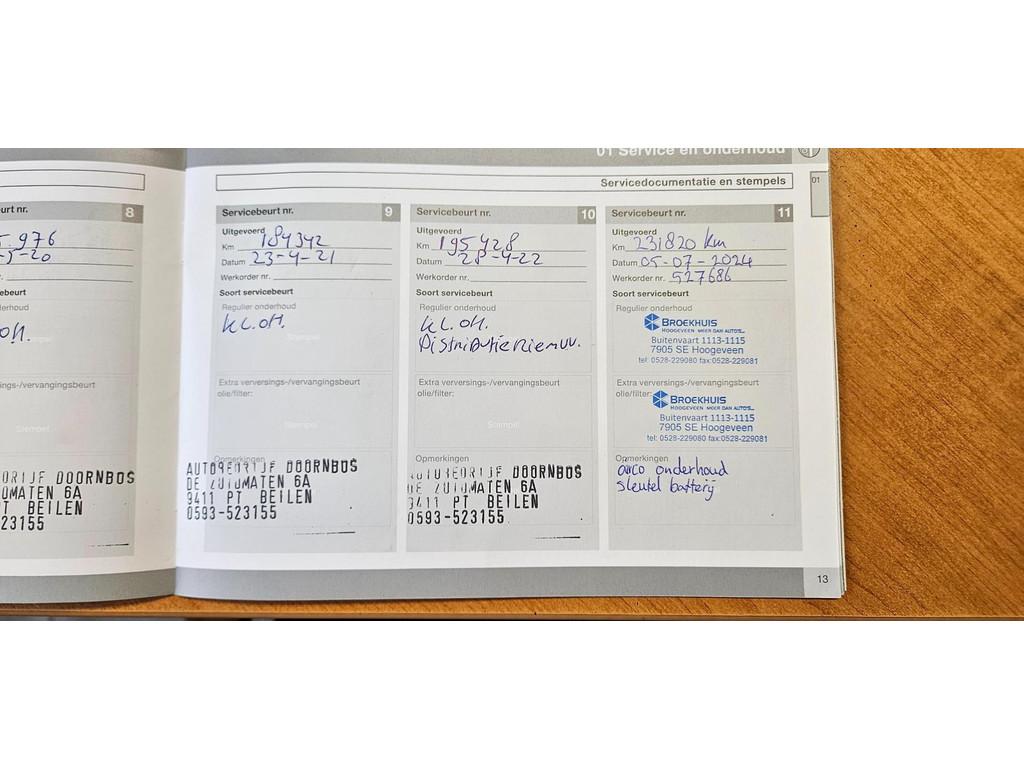 01 Service en onderhoud
Servicedocumentatie en stempels
01
urt nr. 8
976
5-20
nr.
cebeurt
onderhoud
OH.
Stempel
sings-/vervangingsbeurt
Stempel
DRIJF DOORNBOS
OMATEN 6A
T BEILEN
23155
Servicebeurt nr. 9
Uitgevoerd
Km 184342
Datum 23-4-21
Werkorder nr.
Soort servicebeurt
Regulier onderhoud
KL.OH.
Stempel
Extra verversings-/vervangingsbeurt
olie/filter:
Stempel
Opmerkingen
AUTOBEDRIJF DOORNBOS
DE ZUIDMATEN 6A
9411 PT BEILEN
0593-523155
Servicebeurt nr. 10
Uitgevoerd
Km 195428
Datum 28-4-22
Werkorder nr.
Soort servicebeurt
Regulier onderhoud
KL.OH.
Distributieriem vv.
Extra verversings-/vervangingsbeurt
olie/filter:
Stempel
Opmerkingen
AUTOBEDRIJF DOORNBOS
DE ZUIDMATEN 6A
9411 PT BEILEN
0593-523155
Servicebeurt nr. 11
Uitgevoerd
Km 231820 km
Datum 05-07-2024
Werkorder nr. 527686
Soort servicebeurt
Regulier onderhoud
BROEKHUIS
HOOGEVEEN MEER DAN AUTO'S...
Buitenvaart 1113-1115
7905 SE Hoogeveen
tel: 0528-229080 fax:0528-229081
Extra verversings-/vervangingsbeurt
olie/filter:
BROEKHUIS
HOOGEVEEN MEER DAN AUTO'S...
Buitenvaart 1113-1115
7905 SE Hoogeveen
tel: 0528-229080 fax:0528-229081
Opmerkingen
airco onderhoud
sleutel batterij
13